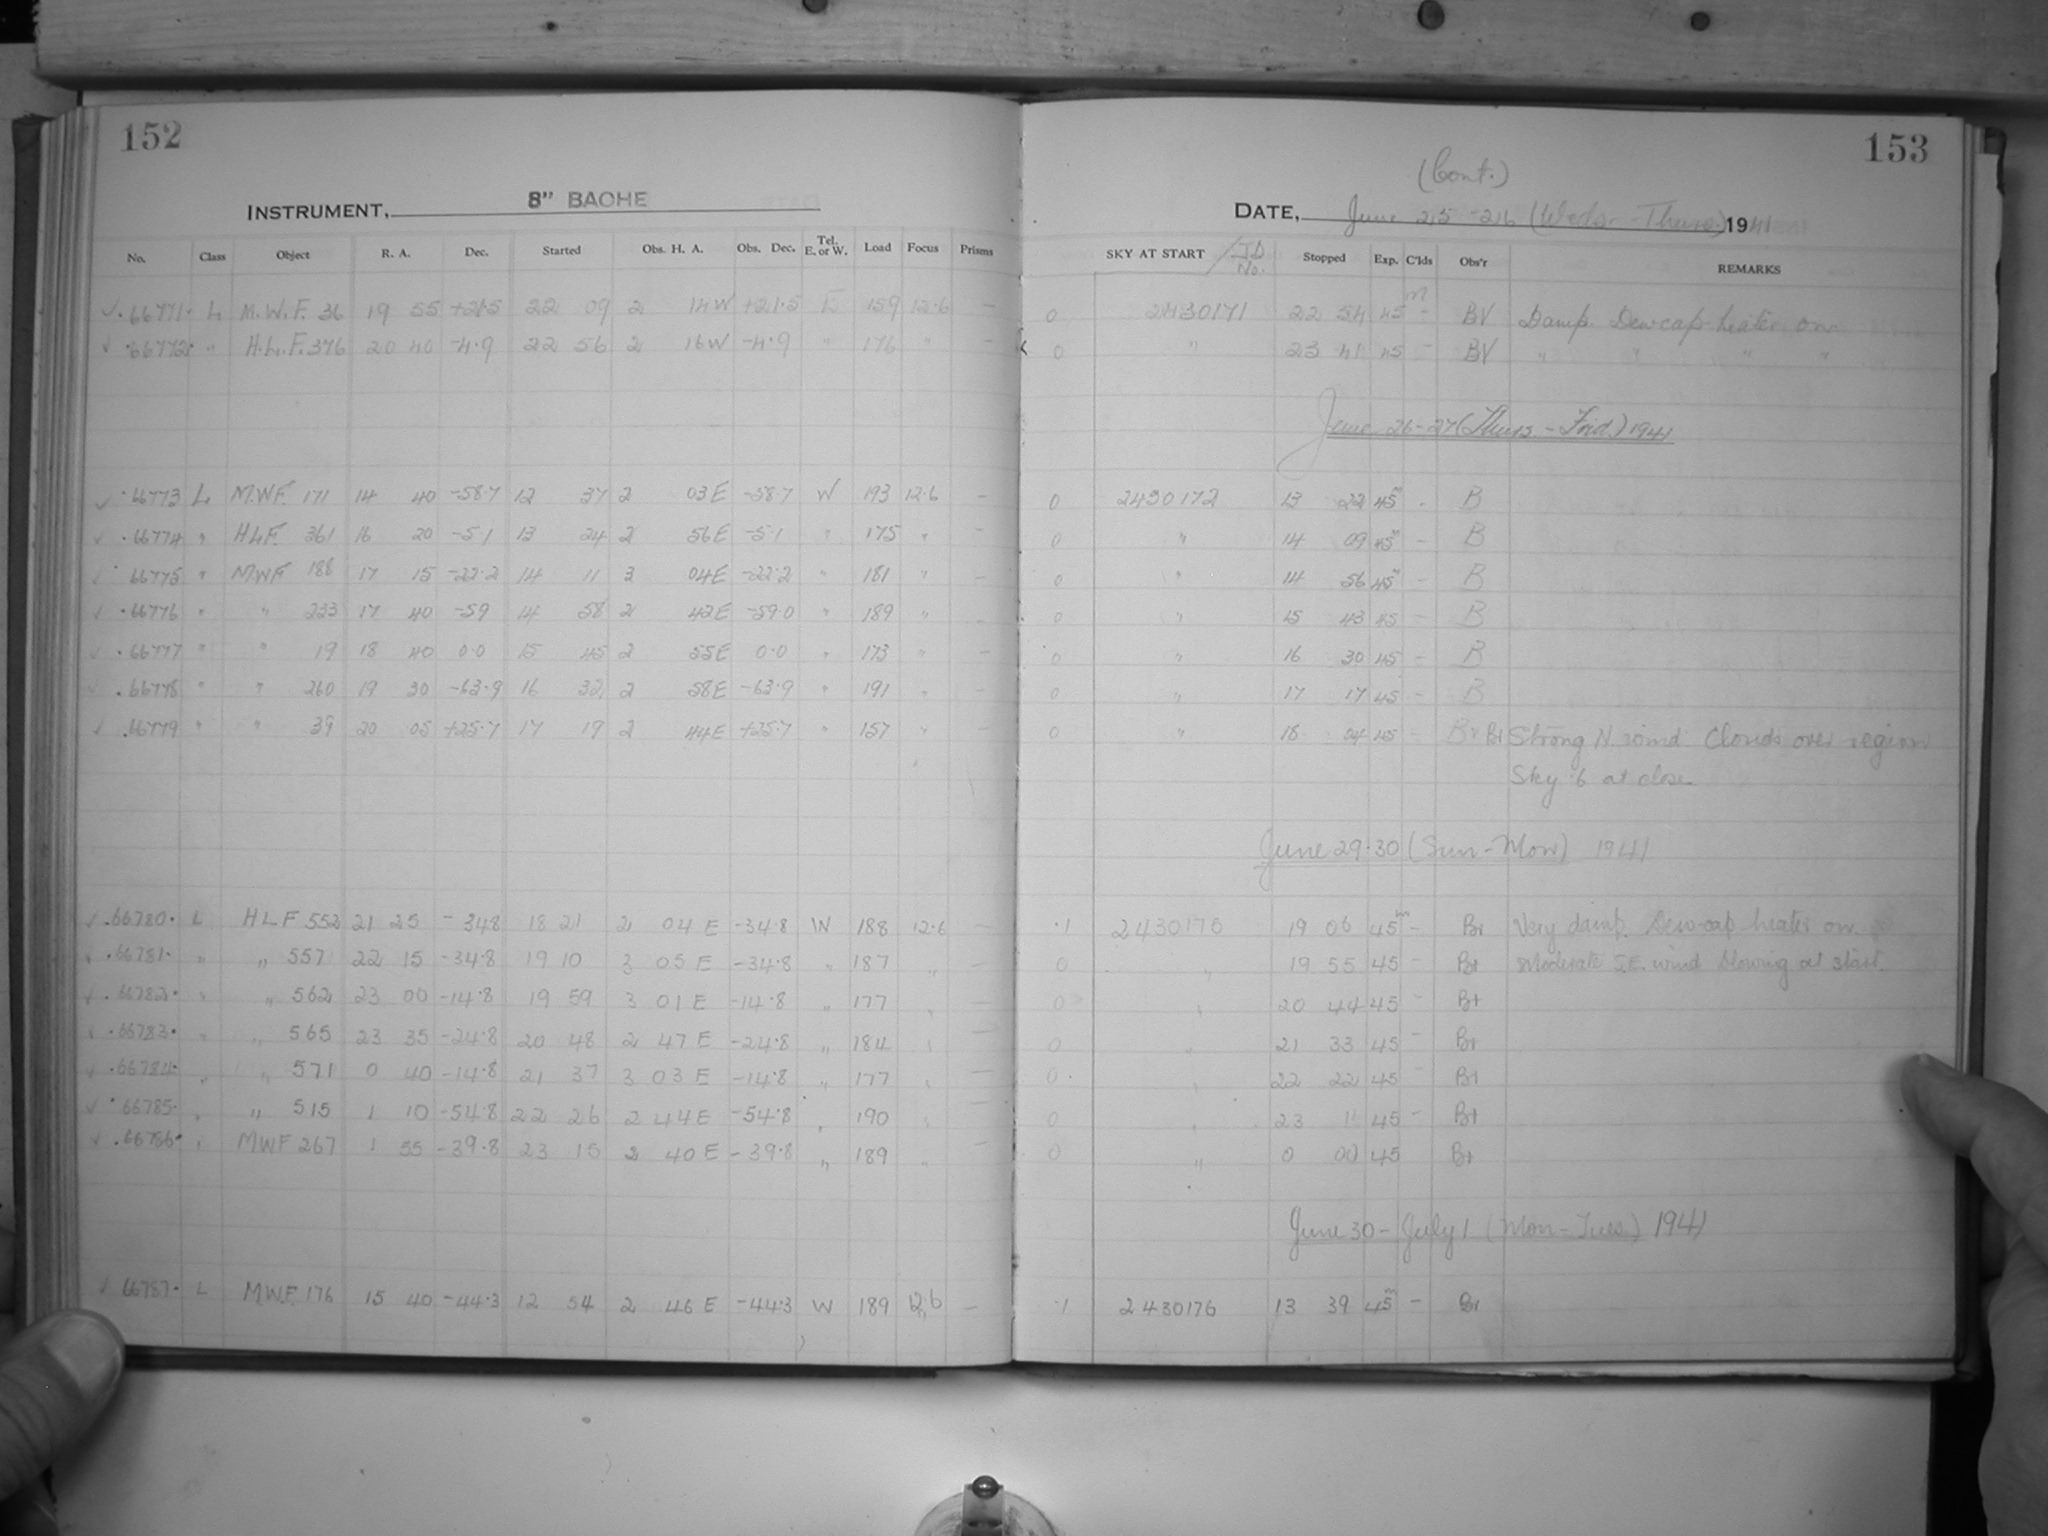 152
INSTRUMENT, 8" BACHE
No. Class Object R. A. Dec. Started Obs. H. A. Obs. Dec. Tel. E. or W. Load Focus Prisms
66771 L M.W.F. 36 19 55 +21.5 22 09 2 14W +21.5 E 159 12.6 –
66772 " H.L.F. 376 20 40 -4.9 22 56 2 16W -4.9 " 176 " –
66773 L M.W.F. 171 14 40 -58.7 12 37 2 03E -58.7 W 193 12.6 –
66774 " HLF. 361 16 20 -5.1 13 24 2 56E -5.1 " 175 " –
66775 " MWF 188 17 15 -22.2 14 11 3 04E -22.2 " 181 " –
66776 " " 233 17 40 -59 14 58 2 42E -59.0 " 189 " –
66777 " " 19 18 40 0.0 15 45 2 55E 0.0 " 173 " –
66778 " " 260 19 30 -63.9 16 32 2 58E -63.9 " 191 " –
66779 " " 39 20 05 +25.7 17 19 2 44E +25.7 " 157 " –
66780 L HLF 552 21 25 -34.8 18 21 2 04 E -34.8 W 188 12.6 –
66781 " " 557 22 15 -34.8 19 10 3 05 E -34.8 " 187 " –
66782 " " 562 23 00 -14.8 19 59 3 01 E -14.8 " 177 " –
66783 " " 565 23 35 -24.8 20 48 2 47 E -24.8 " 184 " –
66784 " " 571 0 40 -14.8 21 37 3 03 E -14.8 " 177 " –
66785 " " 515 1 10 -54.8 22 26 2 44E -54.8 " 190 " –
66786 " MWF 267 1 55 -39.8 23 15 2 40 E -39.8 " 189 " –
66787 L M.W.F. 176 15 40 -44.3 12 54 2 46 E -44.3 W 189 12.6 –
153
(Cont.)
DATE, June 25-26 (Weds. - Thurs.) 1941
SKY AT START / JD No. Stopped Exp. C'lds Obs'r REMARKS
0 2430171 22 54 45m – BV Damp. Dewcap heater on
0 " 23 41 45 – BV " " " "
June 26-27 (Thurs. - Frid.) 1941
0 2430172 13 22 45m - B
0 " 14 09 45m – B
0 " 14 56 45m – B
0 " 15 43 45 – B
0 " 16 30 45 – B
0 " 17 17 45 – B
0 " 18 04 45 – Br Strong N. wind Clouds over region
Sky .6 at close
June 29-30 (Sun-Mon) 1941
.1 2430175 19 06 45m – Br Very damp. Dew-cap heater on.
0 " 19 55 45 – Br Moderate S.E. wind blowing at start.
0 " 20 44 45 – Br
0 " 21 33 45 – Br
0 " 22 22 45 – Br
0 " 23 11 45 – Br
0 " 0 00 45 Br
June 30 - July 1 (Mon-Tues.) 1941
.1 2430176 13 39 45m – Br